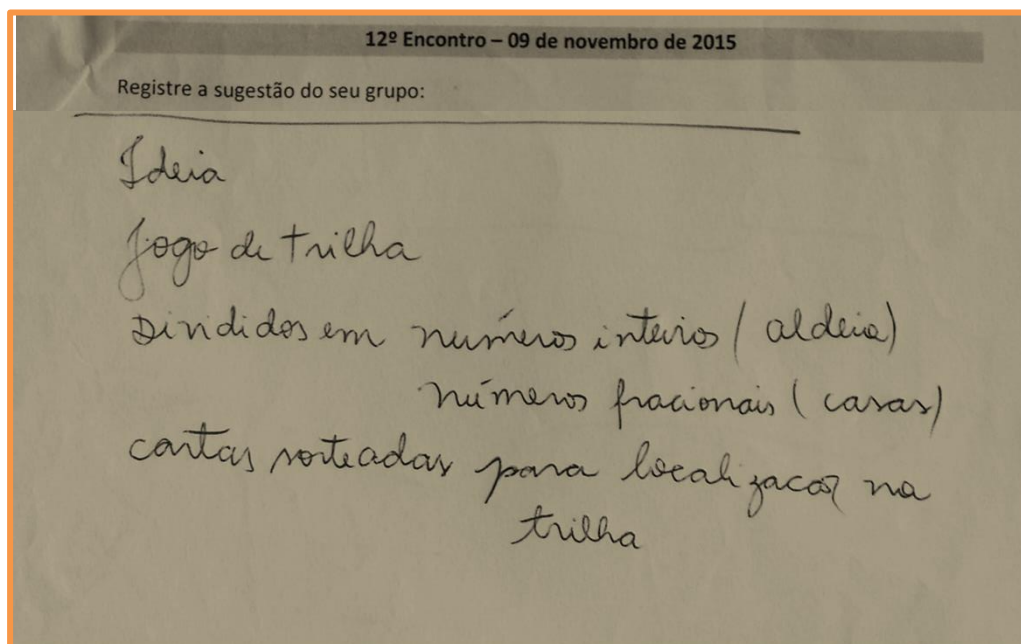 12º Encontro – 09 de novembro de 2015
Registre a sugestão do seu grupo:
Ideia
Jogo de trilha
Divididos em números inteiros (aldeia)
números fracionais (casas)
cartas sorteadas para localizacao na
trilha